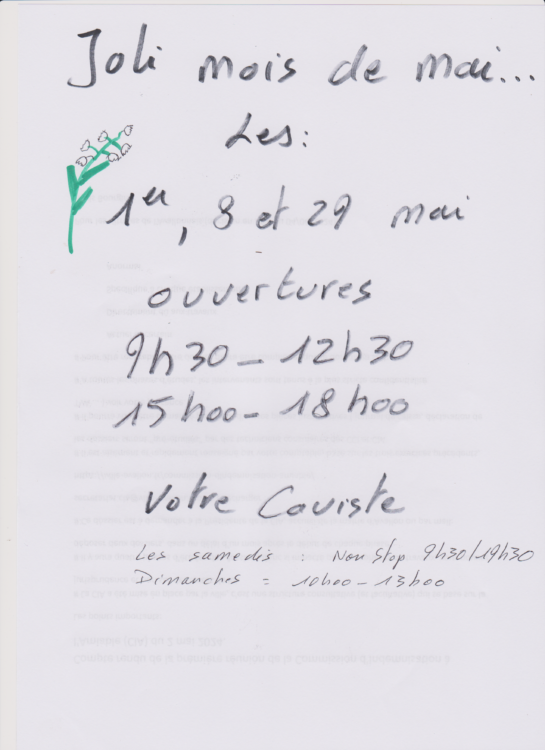 Joli mois de mai...
Les:
1er, 8 et 29 mai
ouvertures
9h30 - 12h30
15h00 - 18h00
Votre Caviste
Les samedis : Non Stop 9h30/19h30
Dimanches = 10h00 - 13h00